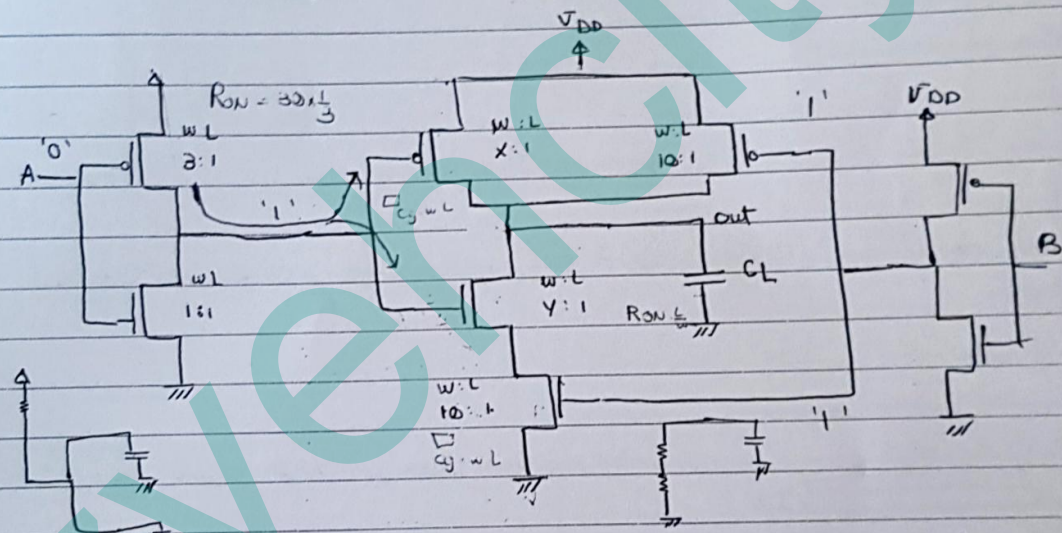 VDD
RON = 30 x 1/3
'1'
VDD
'0'
A
W L
3:1
W:L
X:1
W:L
10:1
'1'
Cg WL
out
W L
1:1
W:L
Y:1
CL
B
RON L/W
W:L
10:1
'1'
Cg. WL